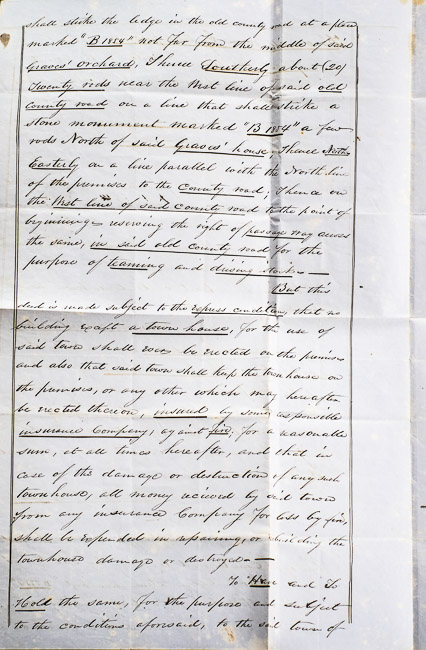 shall strike the ledge in the old county road at a place
marked "B 1854" not far from the middle of said
Graves' orchard, Thence Southerly about (20)
Twenty rods near the West line of said old
County road on a line that shall strike a
stone monument marked "B 1854" a few
rods North of said Graves' house, Thence North
Easterly on a line parallel with the North line
of the premises to the County road; Thence on
the West line of said County road to the point of
beginning - reserving the right of passage way across
the same, in said old county road for the
purpose of teaming and driving
But this
deed is made subject to the express condition, that no
building except a town house, for the use of
said town shall ever be erected on the premises
and also that said town shall keep the town house on
the premises, or any other which may hereafter
be erected thereon, insured by some responsible
insurance Company, against fire, for a reasonable
sum, at all times hereafter, and that in
case of the damage or destruction of any such
townhouse, all money recieved by said town
from any insurance Company for loss by fire,
shall be expended in repairing, or building the
townhouse damage or destroyed.
To Have and To
Hold the same, for the purpose and subject
to the conditions aforesaid, to the said town of